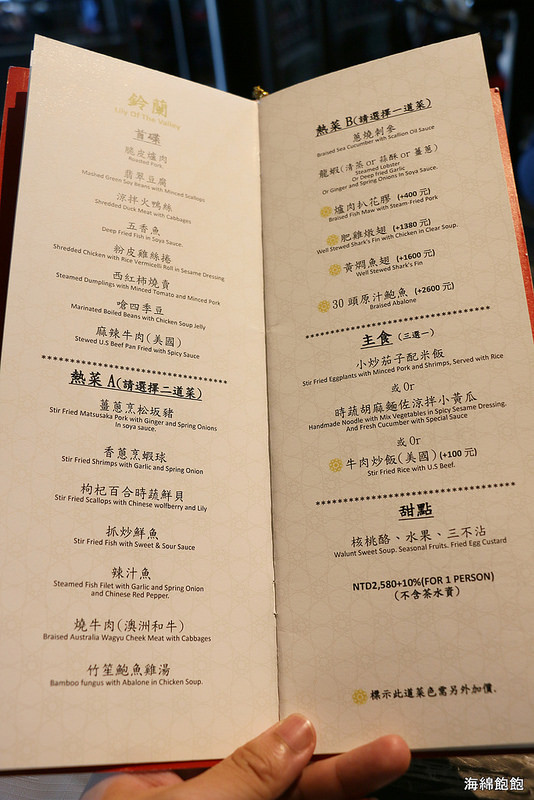 鈴蘭
Lily Of The Valley
首碟
脆皮爐肉
Roasted Pork.
翡翠豆腐
Mashed Green Soy Beans with Minced Scallops
涼拌火鴨絲
Shredded Duck Meat with Cabbages
五香魚
Deep Fried Fish in Soya Sauce.
粉皮雞絲捲
Shredded Chicken with Rice Vermicelli Roll in Sesame Dressing
西紅柿燒賣
Steamed Dumplings with Minced Tomato and Minced Pork
嗆四季豆
Marinated Boiled Beans with Chicken Soup Jelly
麻辣牛肉(美國)
Stewed U.S Beef Pan Fried with Spicy Sauce
熱菜 A(請選擇二道菜)
薑蔥烹松坂豬
Stir Fried Matsusaka Pork with Ginger and Spring Onions
In soya sauce.
香蔥烹蝦球
Stir Fried Shrimps with Garlic and Spring Onion
枸杞百合時蔬鮮貝
Stir Fried Scallops with Chinese wolfberry and Lily
抓炒鮮魚
Stir Fried Fish with Sweet & Sour Sauce
辣汁魚
Steamed Fish Filet with Garlic and Spring Onion
and Chinese Red Pepper.
燒牛肉(澳洲和牛)
Braised Australia Wagyu Cheek Meat with Cabbages
竹笙鮑魚雞湯
Bamboo fungus with Abalone in Chicken Soup.
熱菜 B(請選擇一道菜)
蔥燒刺參
Braised Sea Cucumber with Scallion Oil Sauce
龍蝦(清蒸 or 蒜酥 or 薑蔥)
Steamed Lobster
Or Deep Fried Garlic
Or Ginger and Spring Onions In Soya Sauce.
爐肉扒花膠 (+400 元)
Braised Fish Maw with Steam-Fried Pork
肥雞燉翅 (+1380 元)
Well Stewed Shark's Fin with Chicken in Clear Soup.
黃燜魚翅 (+1600 元)
Well Stewed Shark's Fin
30 頭原汁鮑魚 (+2600 元)
Braised Abalone
主食 (三選一)
小炒茄子配米飯
Stir Fried Eggplants with Minced Pork and Shrimps, Served with Rice
或 Or
時蔬胡麻麵佐涼拌小黃瓜
Handmade Noodle with Mix Vegetables in Spicy Sesame Dressing.
And Fresh Cucumber with Special Sauce
或 Or
牛肉炒飯(美國) (+100 元)
Stir Fried Rice with U.S Beef.
甜點
核桃酪、水果、三不沾
Walunt Sweet Soup. Seasonal Fruits. Fried Egg Custard
NTD2,580+10%(FOR 1 PERSON)
(不含茶水資)
標示此道菜色需另外加價.
海綿飽飽